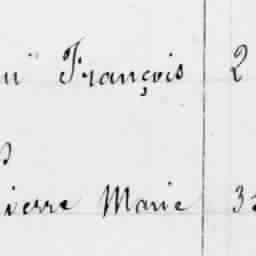 François 2
ierre Marie 3